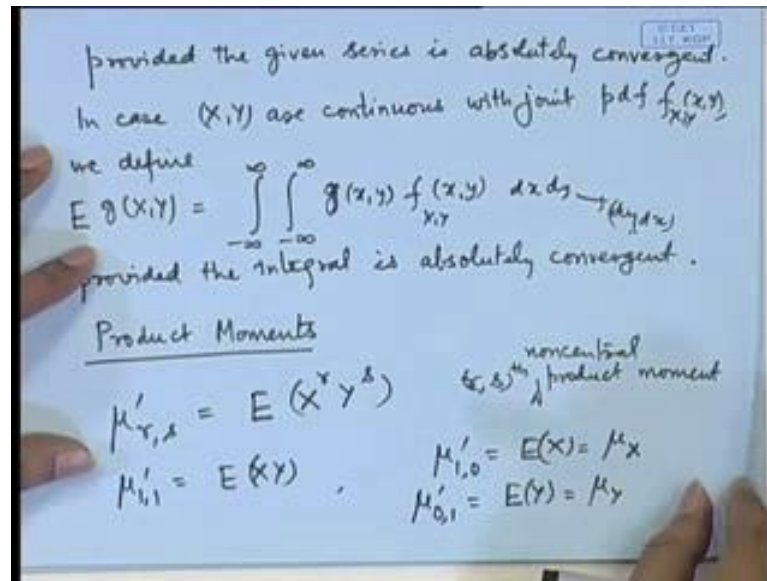 provided the given series is absolutely convergent.
In case (X,Y) are continuous with joint pdf f_{X,Y}(x,y),
we define
E g(X,Y) = ∫_{-∞}^{∞} ∫_{-∞}^{∞} g(x,y) f_{X,Y}(x,y) dx dy → (dy dx)
provided the integral is absolutely convergent.
Product Moments
μ'_{r,s} = E(X^r Y^s) (r,s)^{th} noncentral product moment
μ'_{1,1} = E(XY) , μ'_{1,0} = E(X) = μ_X
μ'_{0,1} = E(Y) = μ_Y